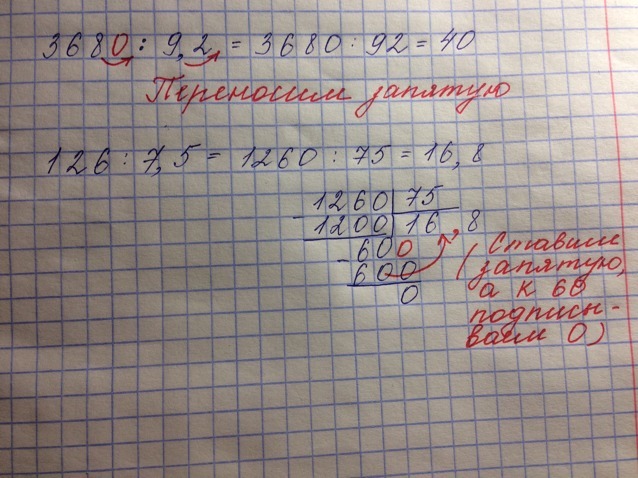 3680 : 9,2 = 3680 : 92 = 40
Переносим запятую
126 : 7,5 = 1260 : 75 = 16,8
1260 75
- 1200 16,8
- 600
600
0
(Ставим
запятую,
а к 60
подписы-
ваем 0)